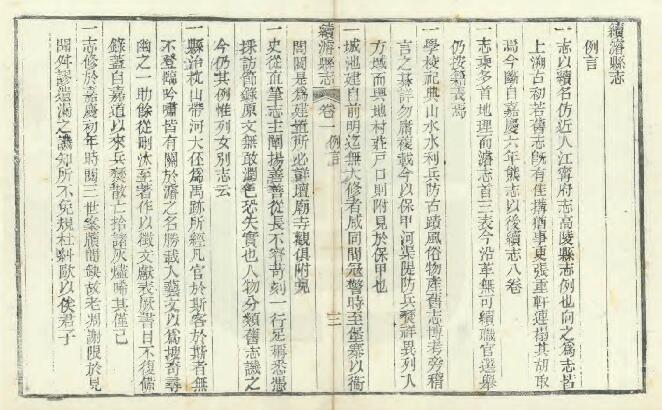 續濬縣志
例言
一志以續名仿近人江寧府志高陵縣志例也向之為志皆
上溯古初若舊志既有佳搆猶事更張重軒連榻其胡取
焉今斷自嘉慶六年熊志以後續志八卷
一志乘多首地理而濬志首三表今沿革無可續職官選舉
仍按籍表焉
一學校祀典山水水利兵防古蹟風俗物產舊志博考旁稽
言之綦詳勿庸複載今以保甲河渠隄防兵燹祥異列入
方域而輿地村莊戶口則附見於保甲也
一城池建自前明迄無大修者咸同間寇警時至堡寨以衛
續濬縣志 卷一 例言 三
閭閻是為建置所必詳壇廟寺觀俱附見
一史從直筆志主闡揚善善從長不齊苛刻一行足稱悉憑
採訪節錄原文無敢潤色恐失實也人物分類舊志譏之
今仍其例惟列女別志云
一縣治枕山帶河大伾為禹跡所經凡官於斯客於斯者無
不登臨吟嘯皆有關於濬之名勝載入藝文以為搜奇尋
幽之一助餘從刪汰至著作以徵文獻表厥書目不復備
錄蓋自嘉道以來兵燹散亡拾諸灰燼晞其僅已
一志修於嘉慶初年時閱三世案牘闕缺故老凋謝限於見
聞舛謬遺漏之譏知所不免規杜糾歐以俟君子